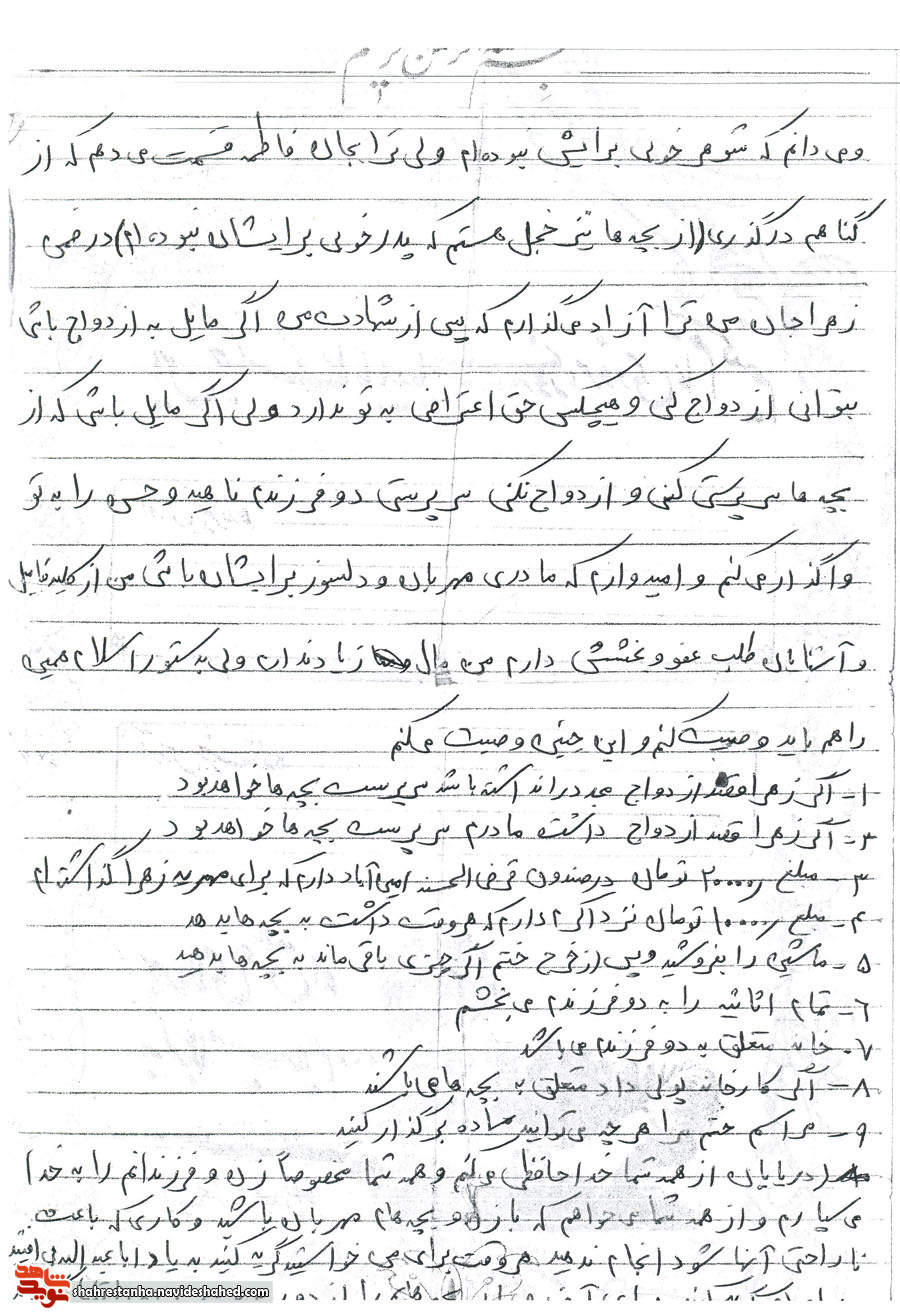 و می دانم که شوهر خوبی برایش نبوده ام ولی ترا بجان فاطمه قسمت می دهم که از
گناهم درگذری (از بچه ها نیز خجل هستم که پدر خوبی برایشان نبوده ام) در ضمن
زهرا جان من ترا آزاد می گذارم که پس از شهادت من اگر مایل به ازدواج باشی
بتوانی ازدواج کنی و هیچکس حق اعتراض به تو ندارد ولی اگر مایل باشی که از
بچه ها سرپرستی کنی و ازدواج نکنی سرپرستی دو فرزندم ناهید و حسن را به تو
واگذار می کنم و امیدوارم که مادری مهربان و دلسوز برایشان باشی من از کلیه فامیل
و آشنایان طلب عفو و بخششی دارم من مال زیاد ندارم ولی بدستور اسلام همین
را هم باید وصیت کنم و این چنین وصیت می کنم
۱- اگر زهرا قصد ازدواج مجدد را نداشته باشد سرپرست بچه ها خواهد بود
۲- اگر زهرا قصد ازدواج داشت مادرم سرپرست بچه ها خواهد بود
۳- مبلغ ۲۰۰۰۰ تومان در صندوق قرض الحسنه امین آباد دارم که برای مهریه زهرا گذاشته ام
۴- مبلغ تومان نزد دارم که هر وقت داشت به بچه ها بدهد
۵- ماشین را بفروشید و پس از خرج ختم اگر چیزی باقی ماند به بچه ها بدهید
۶- تمام اثاثیه را به دو فرزندم می بخشم
۷- خانه متعلق به دو فرزندم می باشد
۸- اگر کارخانه پولی داد متعلق به بچه ها می باشد
۹- مراسم ختم مرا هر چه می توانید ساده برگذار کنید
در پایان از همه شما خداحافظی می کنم و همه شما مخصوصاً زن و فرزندانم را به خدا
می سپارم و از همه شما می خواهم که با زن و بچه هام مهربان باشید و کاری که باعث
ناراحتی آنها شود انجام ندهید هر وقت برای من خواستید گریه کنید به یاد ابا عبدالله
نوید شاهد
shahrestanha.navideshahed.com